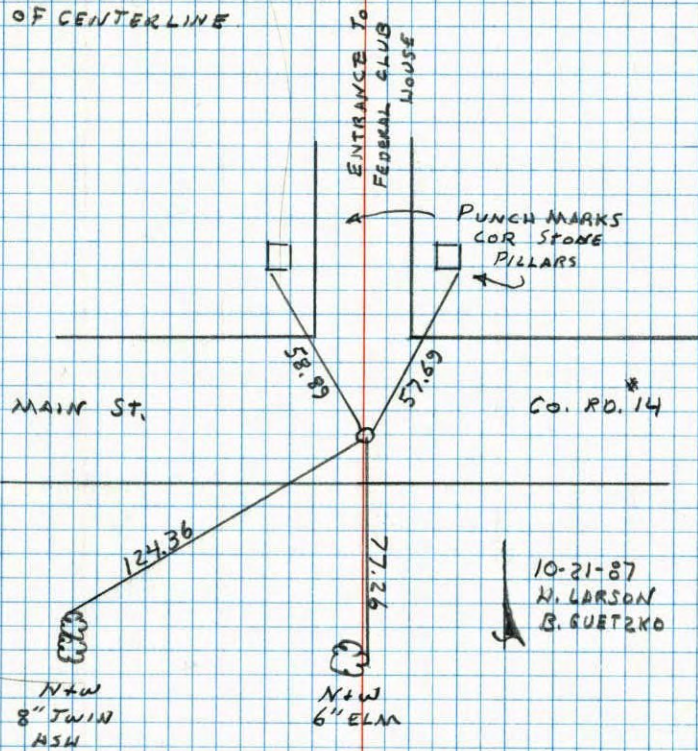 OF CENTERLINE.
ENTRANCE TO
FEDERAL CLUB
HOUSE
PUNCH MARKS
COR STONE
PILLARS
58.89
57.69
MAIN ST.
CO. RD. #14
124.36
77.26
10-21-87
W. LARSON
B. GUETZKO
N+W
8" TWIN
ASH
N+W
6" ELM